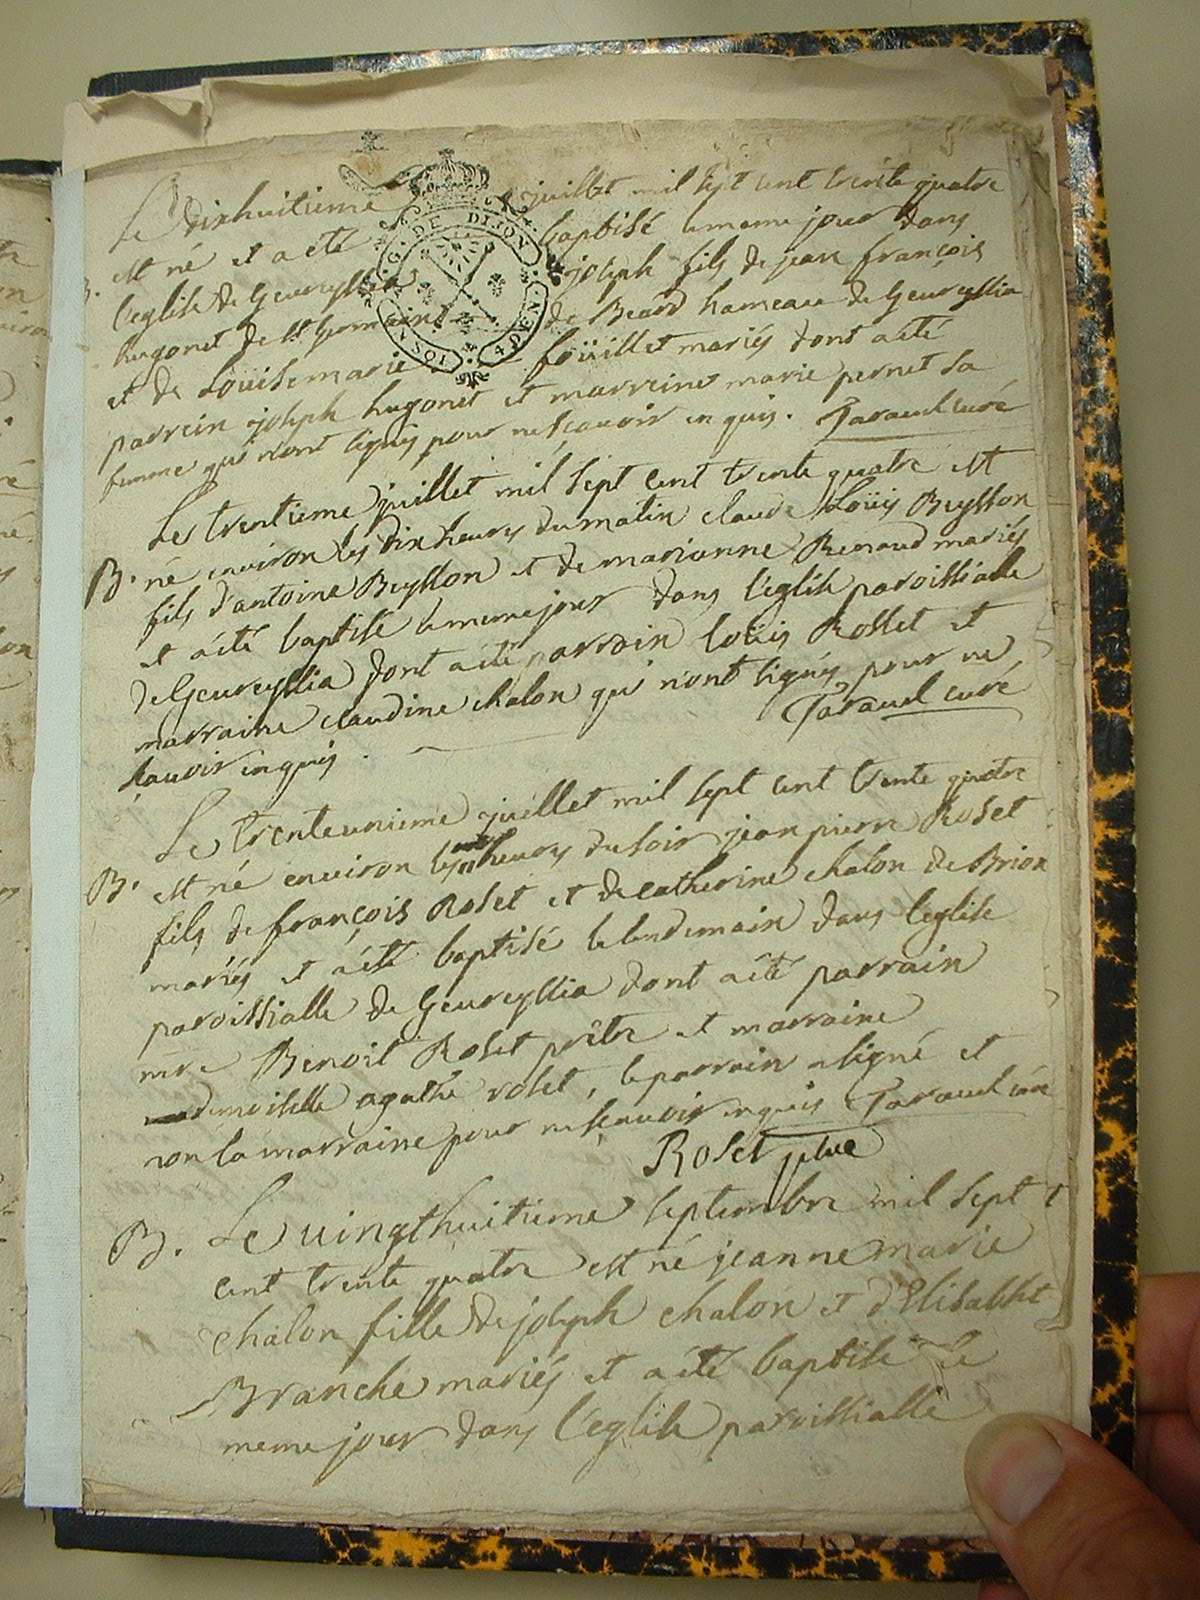 Le dixhuitieme juillet mil sept cent trente quatre
B. est né et a eté baptisé le meme jour dans
l'eglise de Geureyssia joseph fils de jean françois
hugonet de st Germain de Beard hameau de Geureyssia
et de Loüise marie foüillet mariés dont a eté
parrein joseph hugonet et marreine marie pernet sa
femme qui n'ont signés pour ne scavoir enquis. Taravel curé
G. DE DIJON
4 DEN
Le trentieme juillet mil sept cent trente quatre est
B. né environ les dix heures du matin claude Loüis Buysson
fils d'antoine Buysson et de marianne Renaud mariés
et a eté baptisé le meme jour dans l'eglise paroissialle
de Geureyssia dont a eté parrain loüis Rosset et
marraine claudine chalon qui n'ont signés pour ne
scauoir enquis. Taravel curé
Le trenteunieme juillet mil sept cent trente quatre
B. est né environ les heures du soir jean pierre Roset
fils de françois Roset et de catherine chalon de Brion
mariés et a eté baptisé le lendemain dans l'eglise
paroissialle de Geureyssia dont a eté parrain
mre Benoit Roset prêtre et marraine
demoiselle agathe roset, le parrain a signé et
non la marraine pour ne scauoir enquis Taravel curé
Roset ptre
B. Le vingthuitieme septembre mil sept
cent trente quatre est né jeanne marie
chalon fille de joseph chalon et d'Elisabht
Branche mariés et a eté baptisé le
meme jour dans l'eglise paroissialle